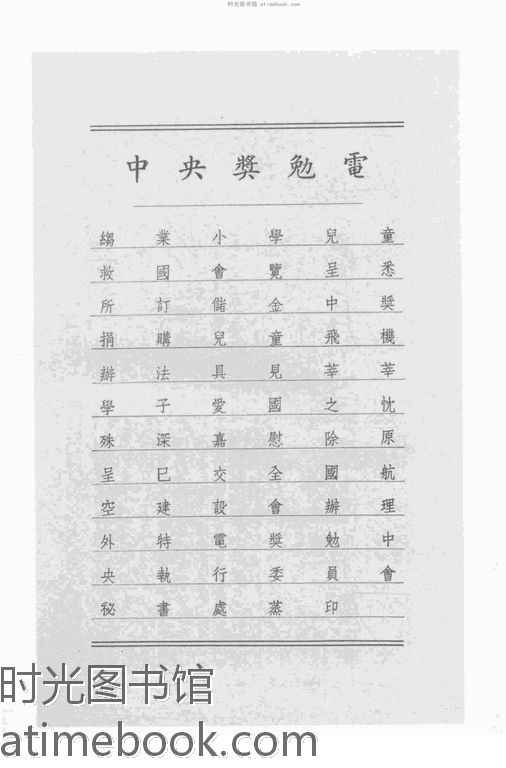 时光图书馆 atimebook.com
中央獎勉電
縐業小學兒童
救國會覽呈悉
所訂儲金中獎
捐購兒童飛機
辦法具見莘莘
學子愛國之忱
殊深嘉慰除原
呈巳交全國航
空建設會辦理
外特電獎勉中
央執行委員會
秘書處蒸印
时光图书馆
atimebook.com